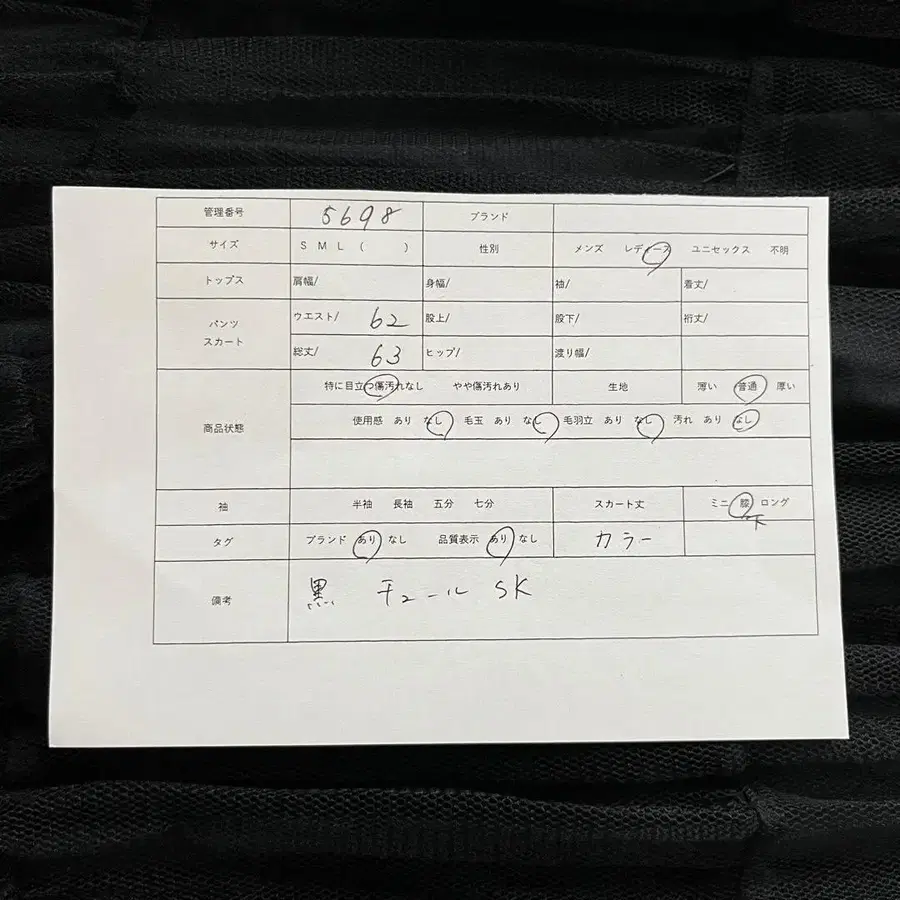 管理番号 5698 ブランド
サイズ S M L ( ) 性別 メンズ レディース ユニセックス 不明
トップス 肩幅/ 身幅/ 袖/ 着丈/
パンツ スカート
ウエスト/ 62 股上/ 股下/ 裄丈/
総丈/ 63 ヒップ/ 渡り幅/
商品状態
特に目立つ傷汚れなし やや傷汚れあり 生地 薄い 普通 厚い
使用感 あり なし 毛玉 あり なし 毛羽立 あり なし 汚れ あり なし
袖 半袖 長袖 五分 七分 スカート丈 ミニ 膝 ロング
下
タグ ブランド あり なし 品質表示 あり なし カラー
備考 黒 チュール SK